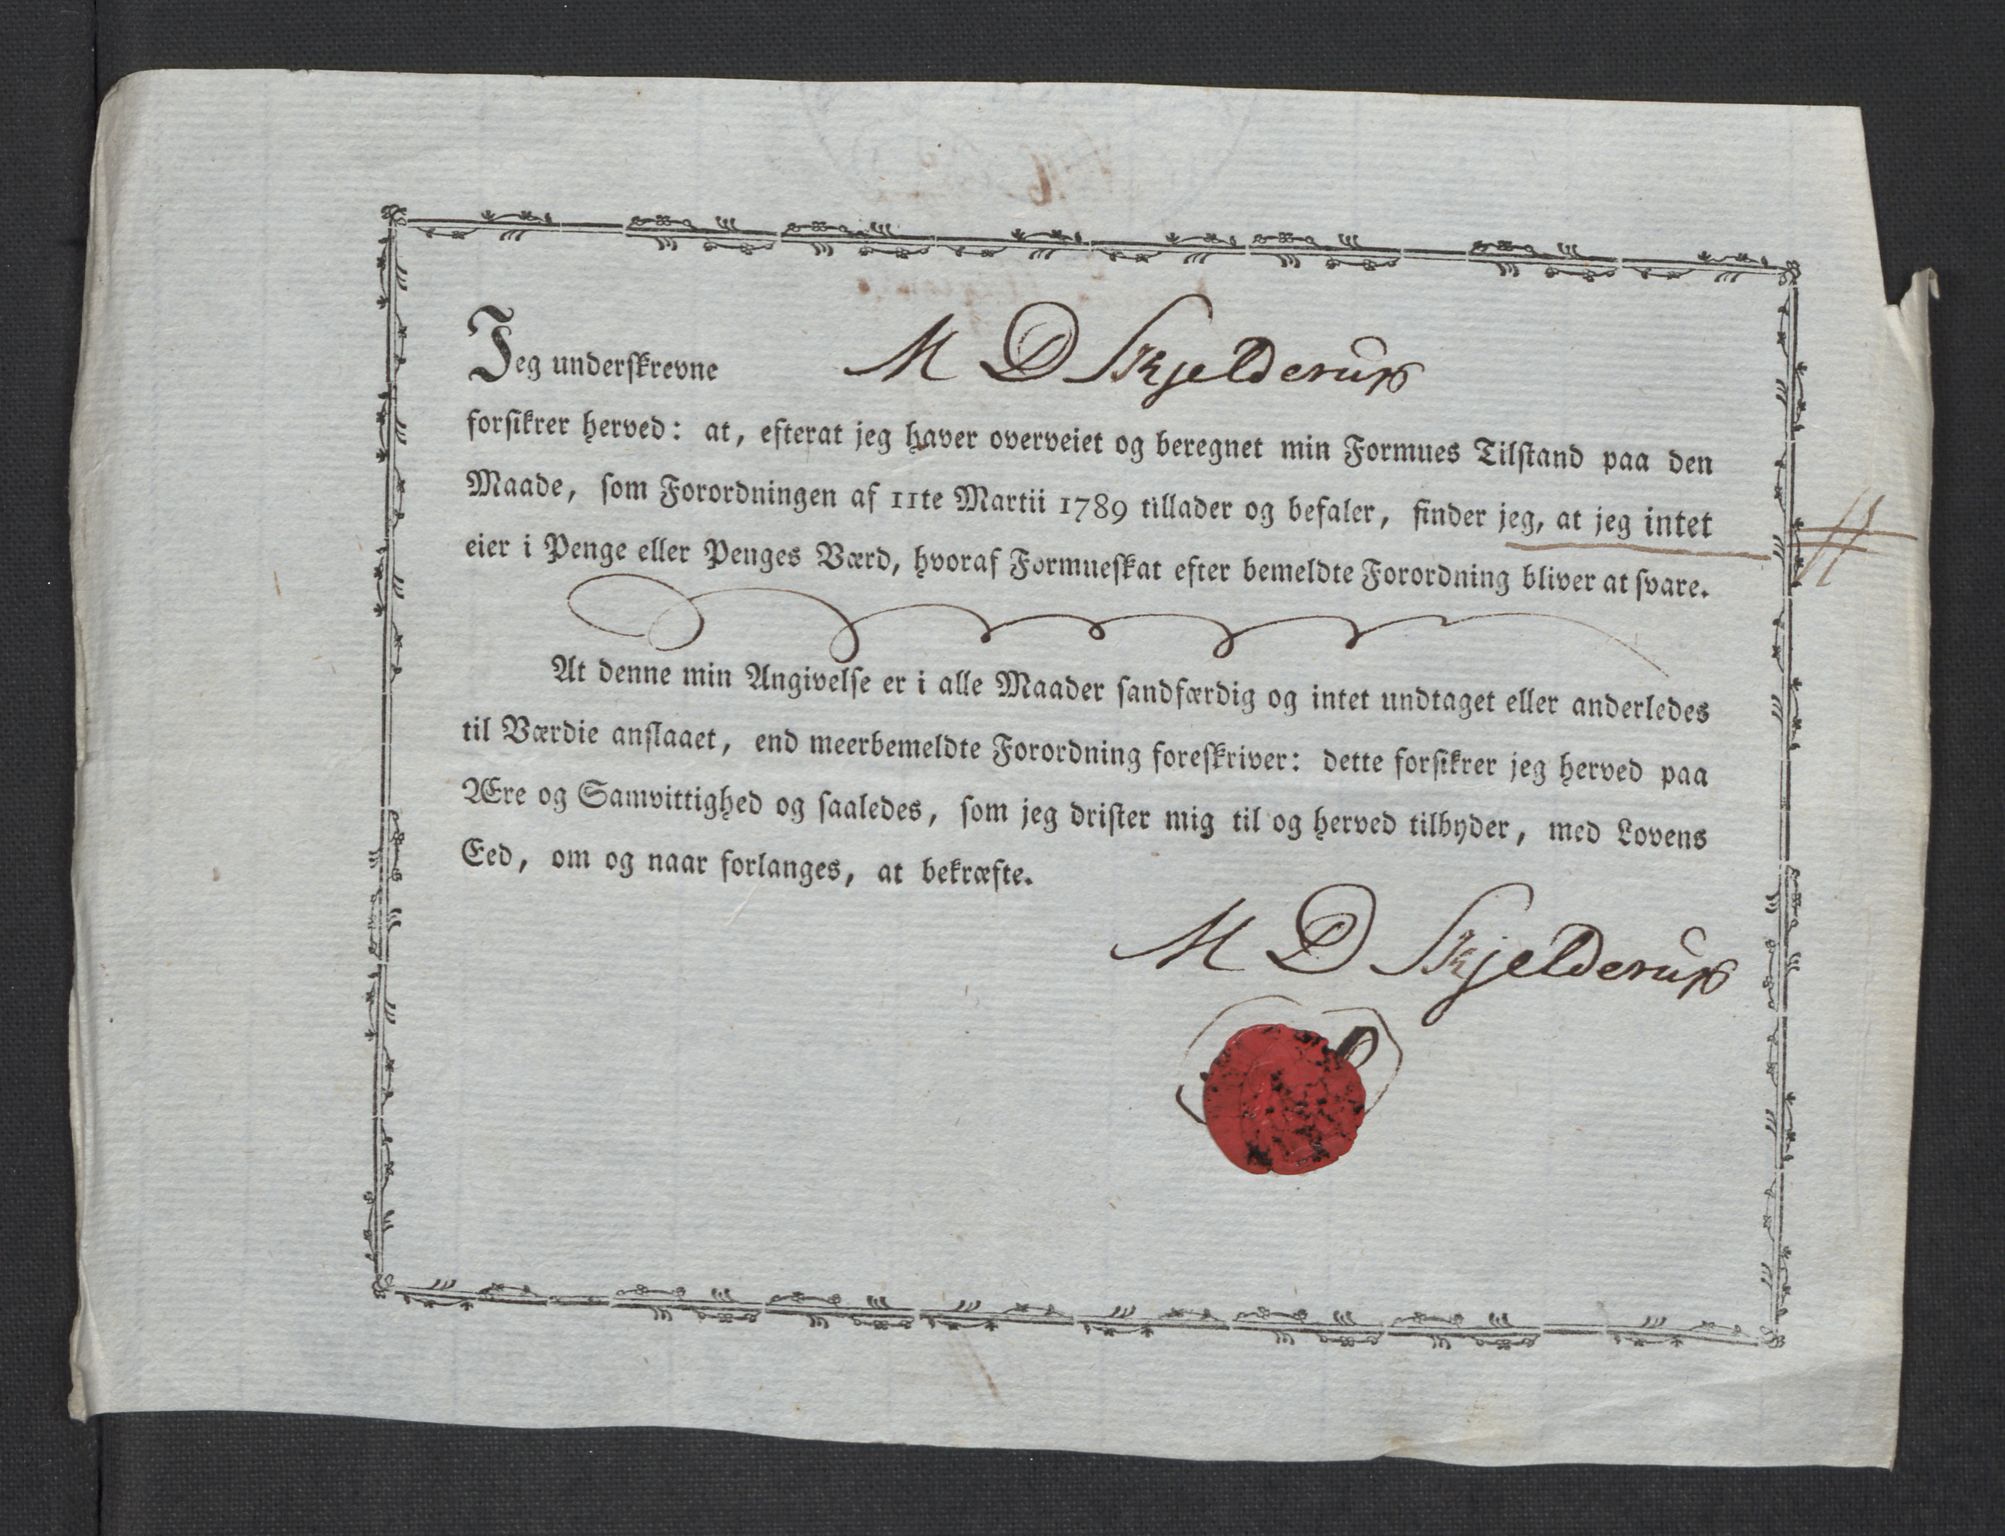 Jeg underskrevne M D Skjelderup
forsikrer herved: at, efterat jeg haver overveiet og beregnet min Formues Tilstand paa den
Maade, som Forordningen af 11te Martii 1789 tillader og befaler, finder jeg, at jeg intet
eier i Penge eller Penges Værd, hvoraf Formueskat efter bemeldte Forordning bliver at svare.
At denne min Angivelse er i alle Maader sandfærdig og intet undtaget eller anderledes
til Værdie anslaaet, end meerbemeldte Forordning foreskriver: dette forsikrer jeg herved paa
Ære og Samvittighed og saaledes, som jeg drister mig til og herved tilbyder, med Lovens
Eed, om og naar forlanges, at bekræfte.
M D Skjelderup